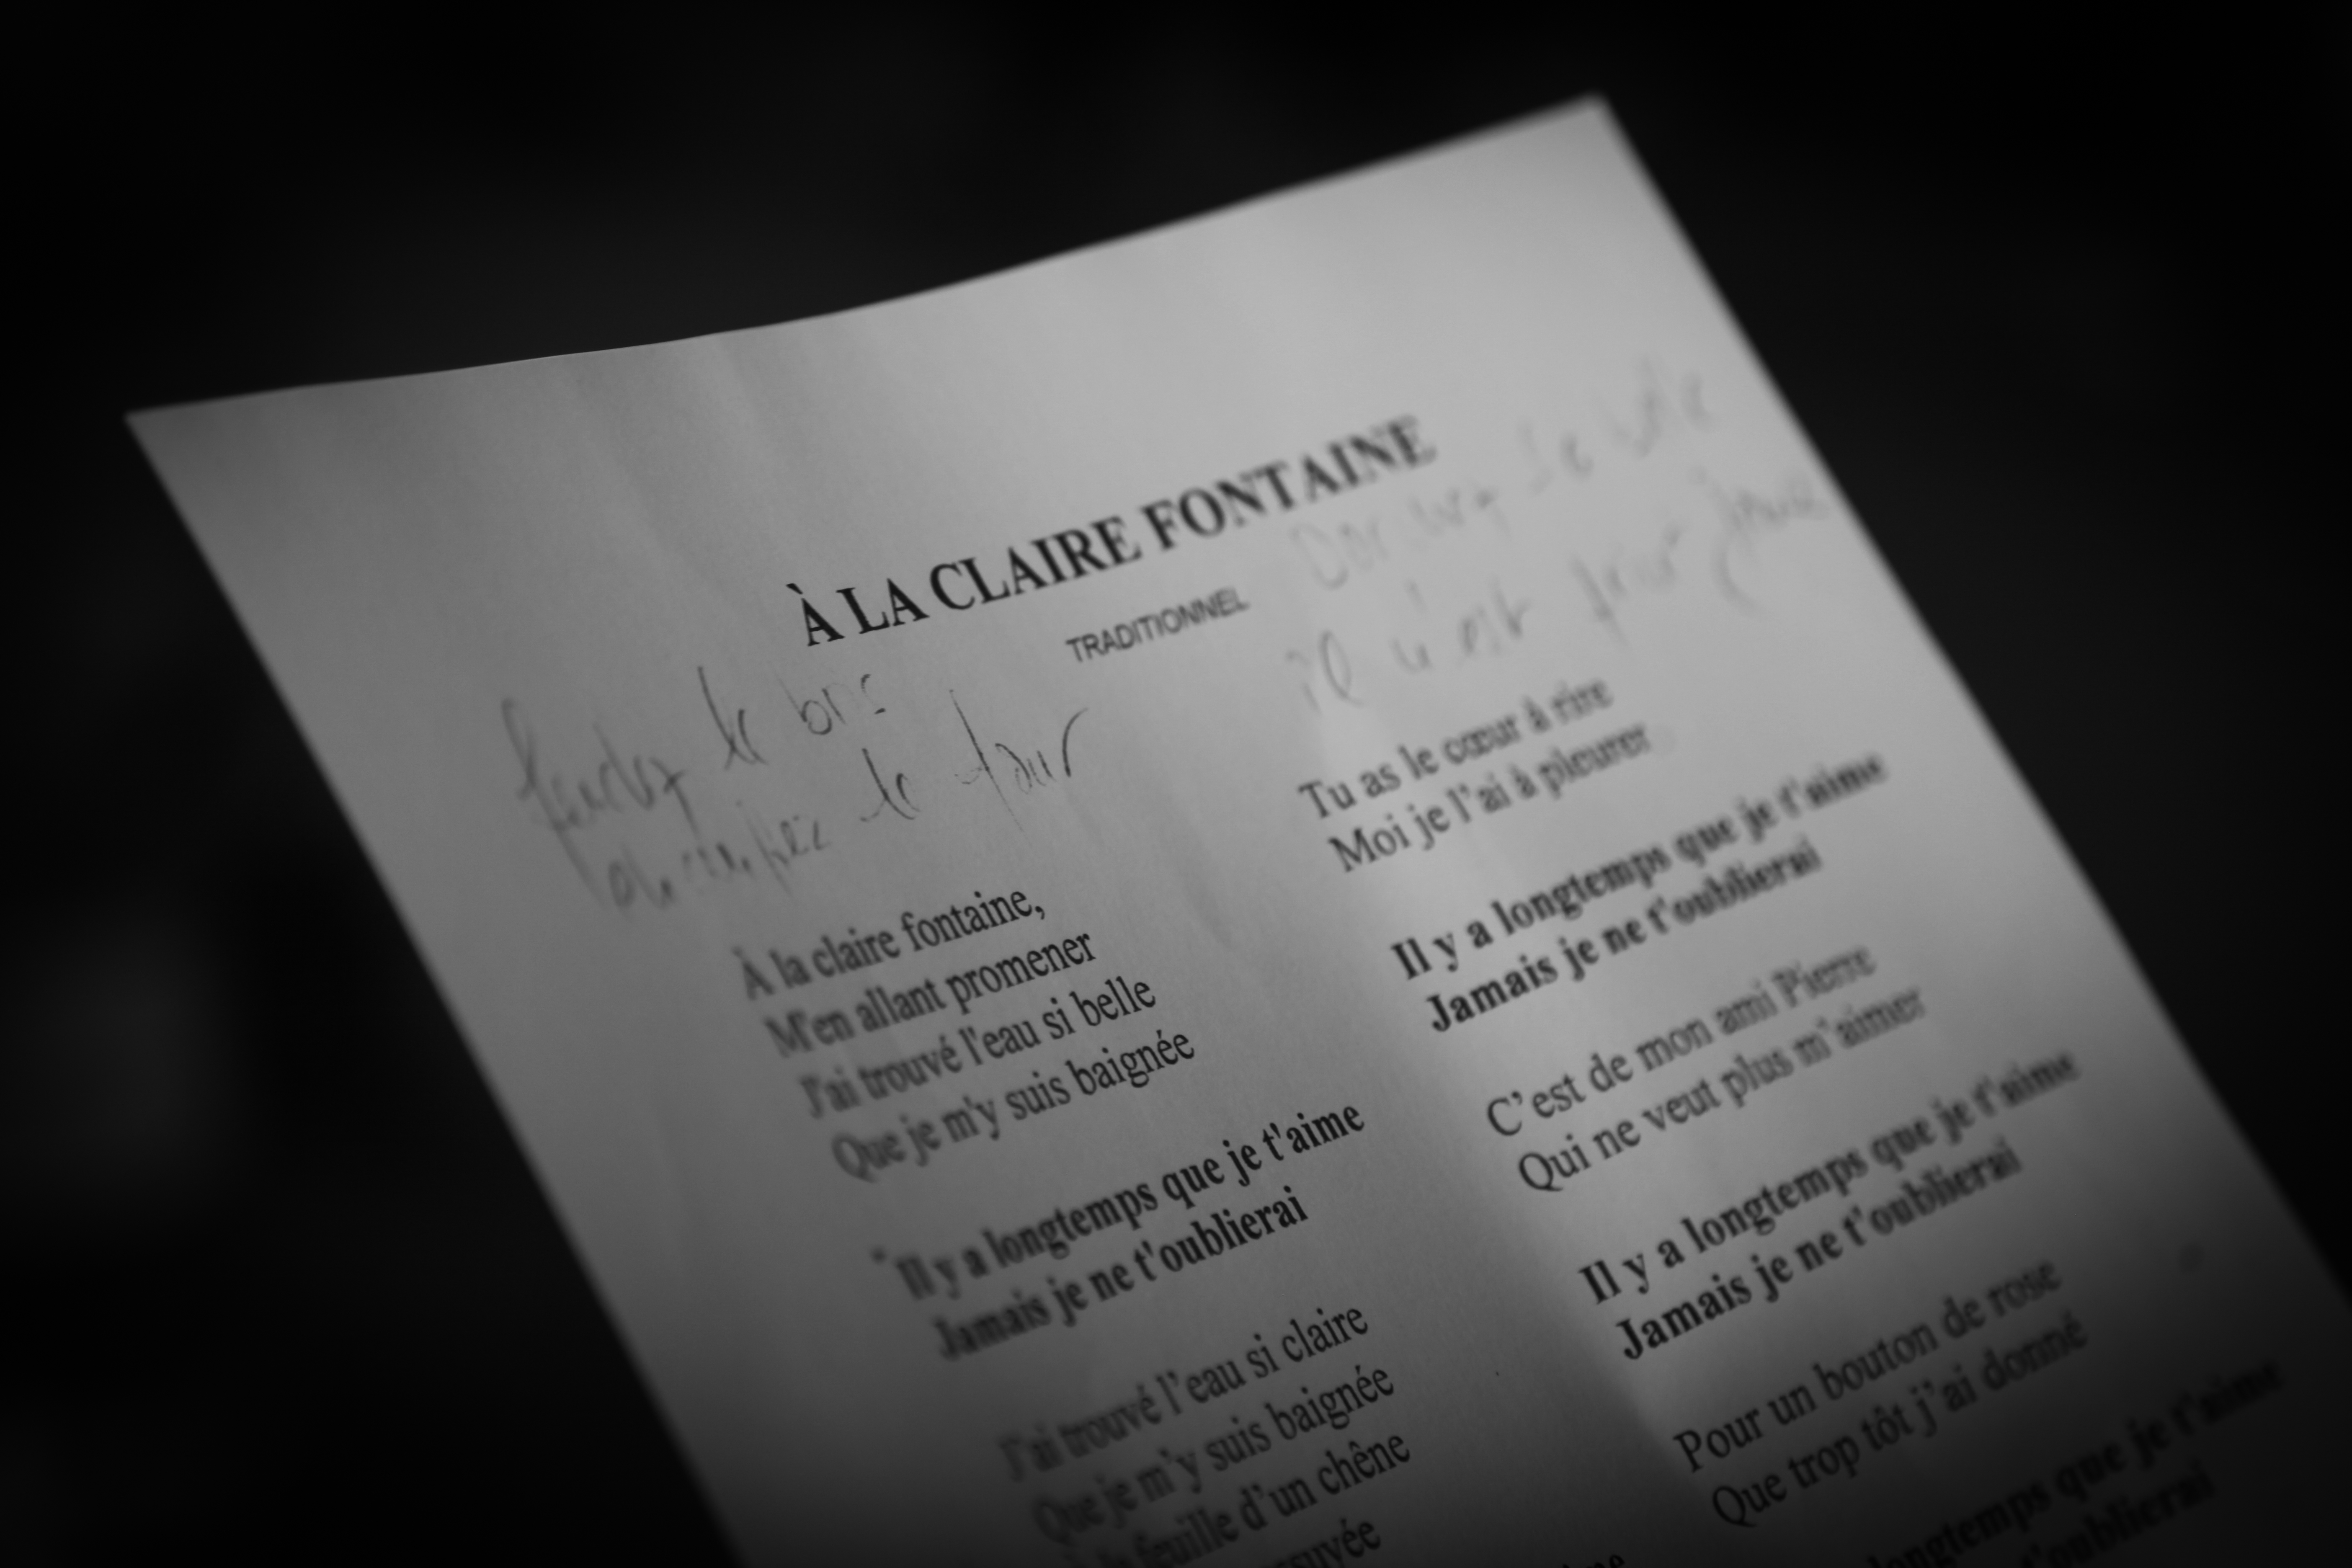 À LA CLAIRE FONTAINE
TRADITIONNEL
le bois
le four
il n'est
À la claire fontaine,
M'en allant promener
J'ai trouvé l'eau si belle
Que je m'y suis baignée
Il y a longtemps que je t'aime
Jamais je ne t'oublierai
J'ai trouvé l'eau si claire
Que je m'y suis baignée
feuille d'un chêne
Tu as le cœur à rire
Moi je l'ai à pleurer
Il y a longtemps que je t'aime
Jamais je ne t'oublierai
C'est de mon ami Pierre
Qui ne veut plus m'aimer
Il y a longtemps que je t'aime
Jamais je ne t'oublierai
Pour un bouton de rose
Que trop tôt j'ai donné
longtemps que je t'aime
t'oublierai